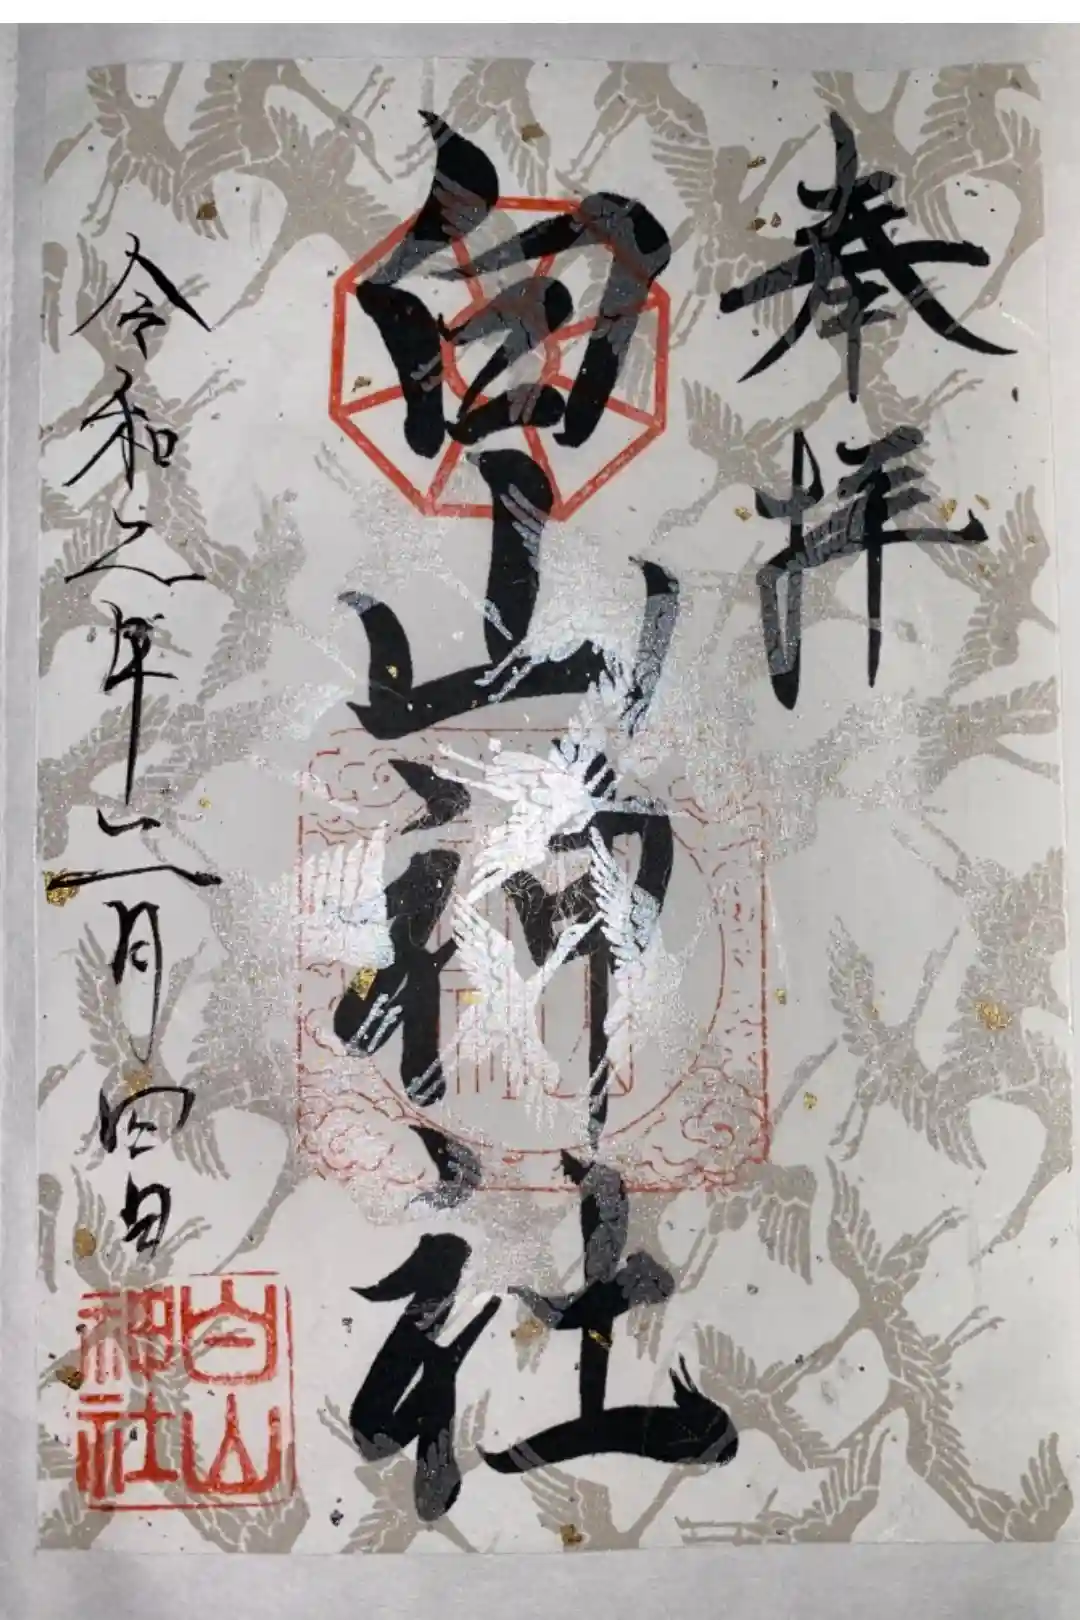 奉拝
白山神社
令和二年二月四日
白山
神社